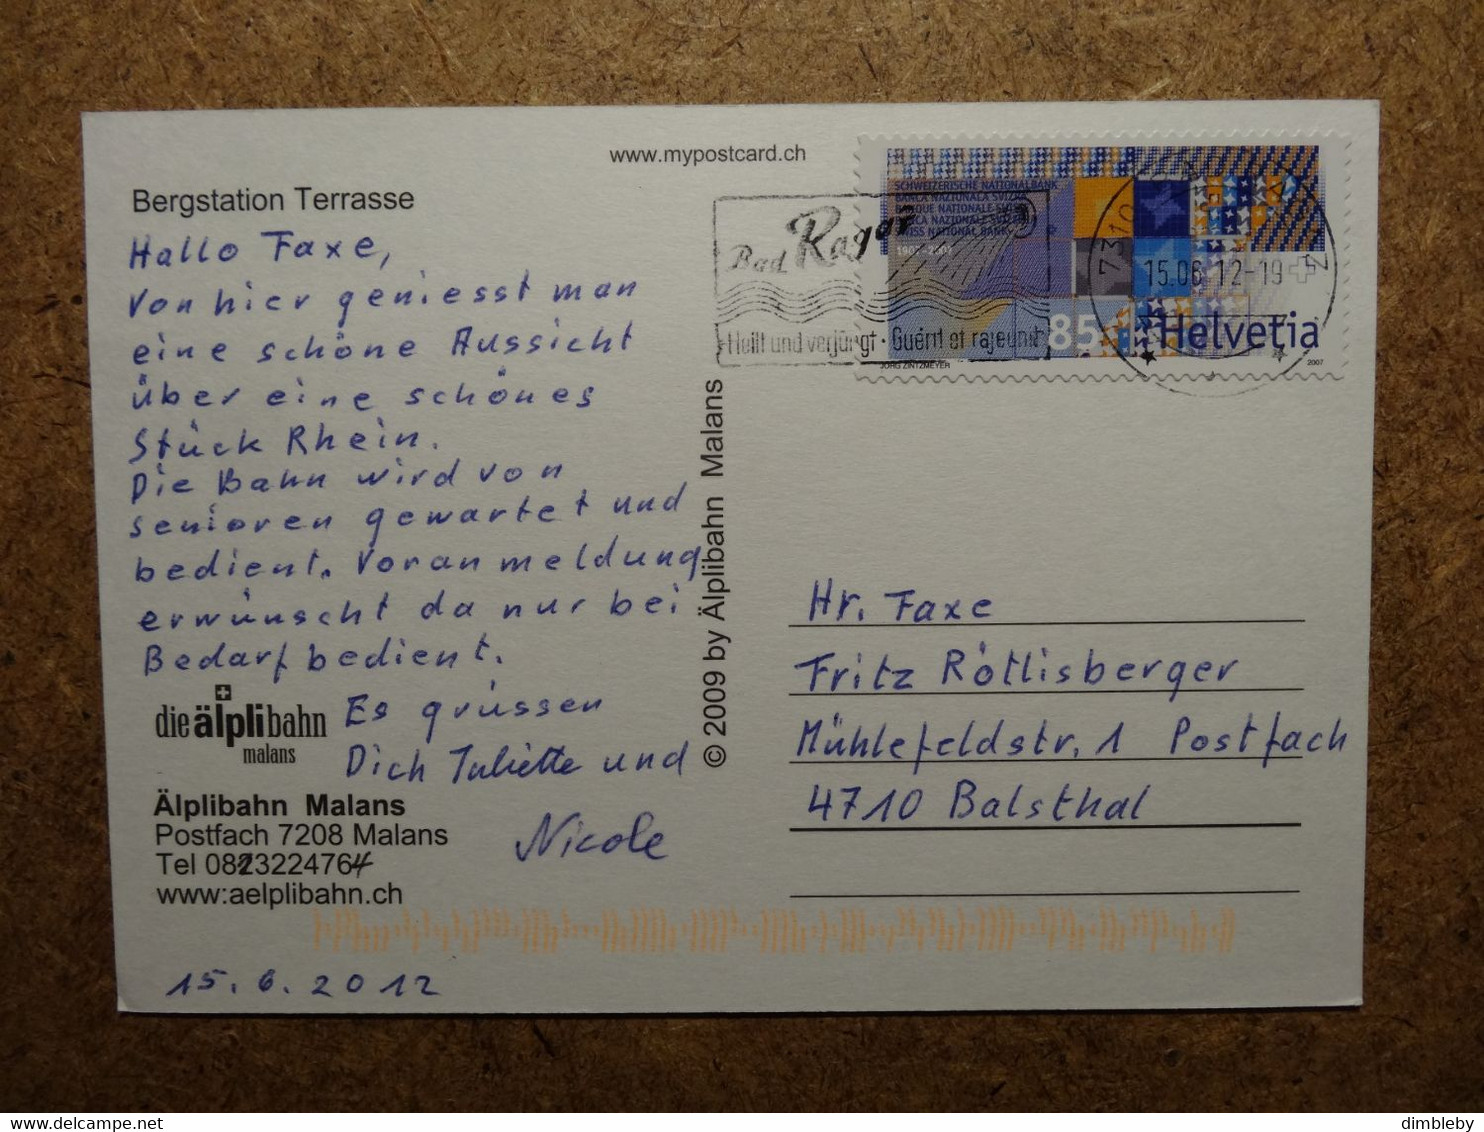 www.mypostcard.ch
Bergstation Terrasse
Hallo Faxe,
Von hier geniesst man
eine schöne Aussicht
über eine schönes
Stück Rhein.
Die Bahn wird von
senioren gewartet und
bedient. Voranmeldung
erwünscht da nur bei
Bedarf bedient.
Es grüssen
Dich Juliette und
Nicole
die älplibahn
malans
Älplibahn Malans
Postfach 7208 Malans
Tel 0813224764
www:aelplibahn.ch
15.6.2012
© 2009 by Älplibahn Malans
SCHWEIZERISCHE NATIONALBANK
BANCA NAZIONALA SVIZRA
BANQUE NATIONALE
NAZIONALE
SWISS NATIONAL BANK
85
Helvetia
JÖRG ZINTZMEYER
2007
Bad Ragaz
Heilt und verjüngt · Guérit et rajeunit
7310
15.06 12-19
Hr. Faxe
Fritz Rötlisberger
Mühlefeldstr. 1 Postfach
4710 Balsthal
dimbleby